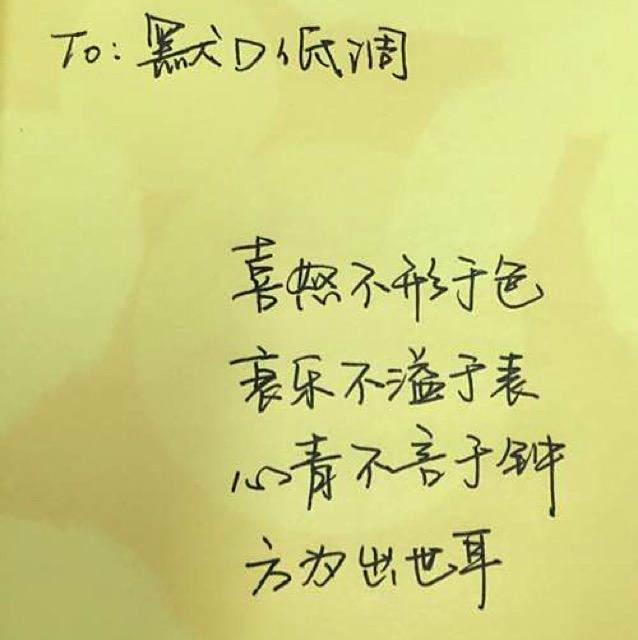 To: 默D低调
喜怒不形于色
哀乐不溢于表
心青不言于钟
方为出世耳